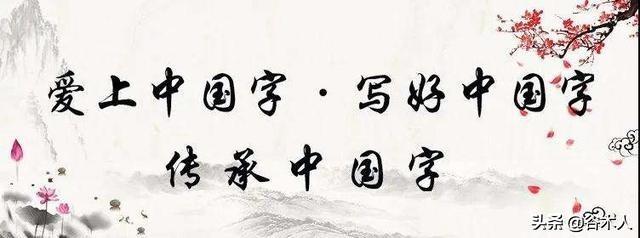 爱上中国字·写好中国字
传承中国字
头条@谷木人